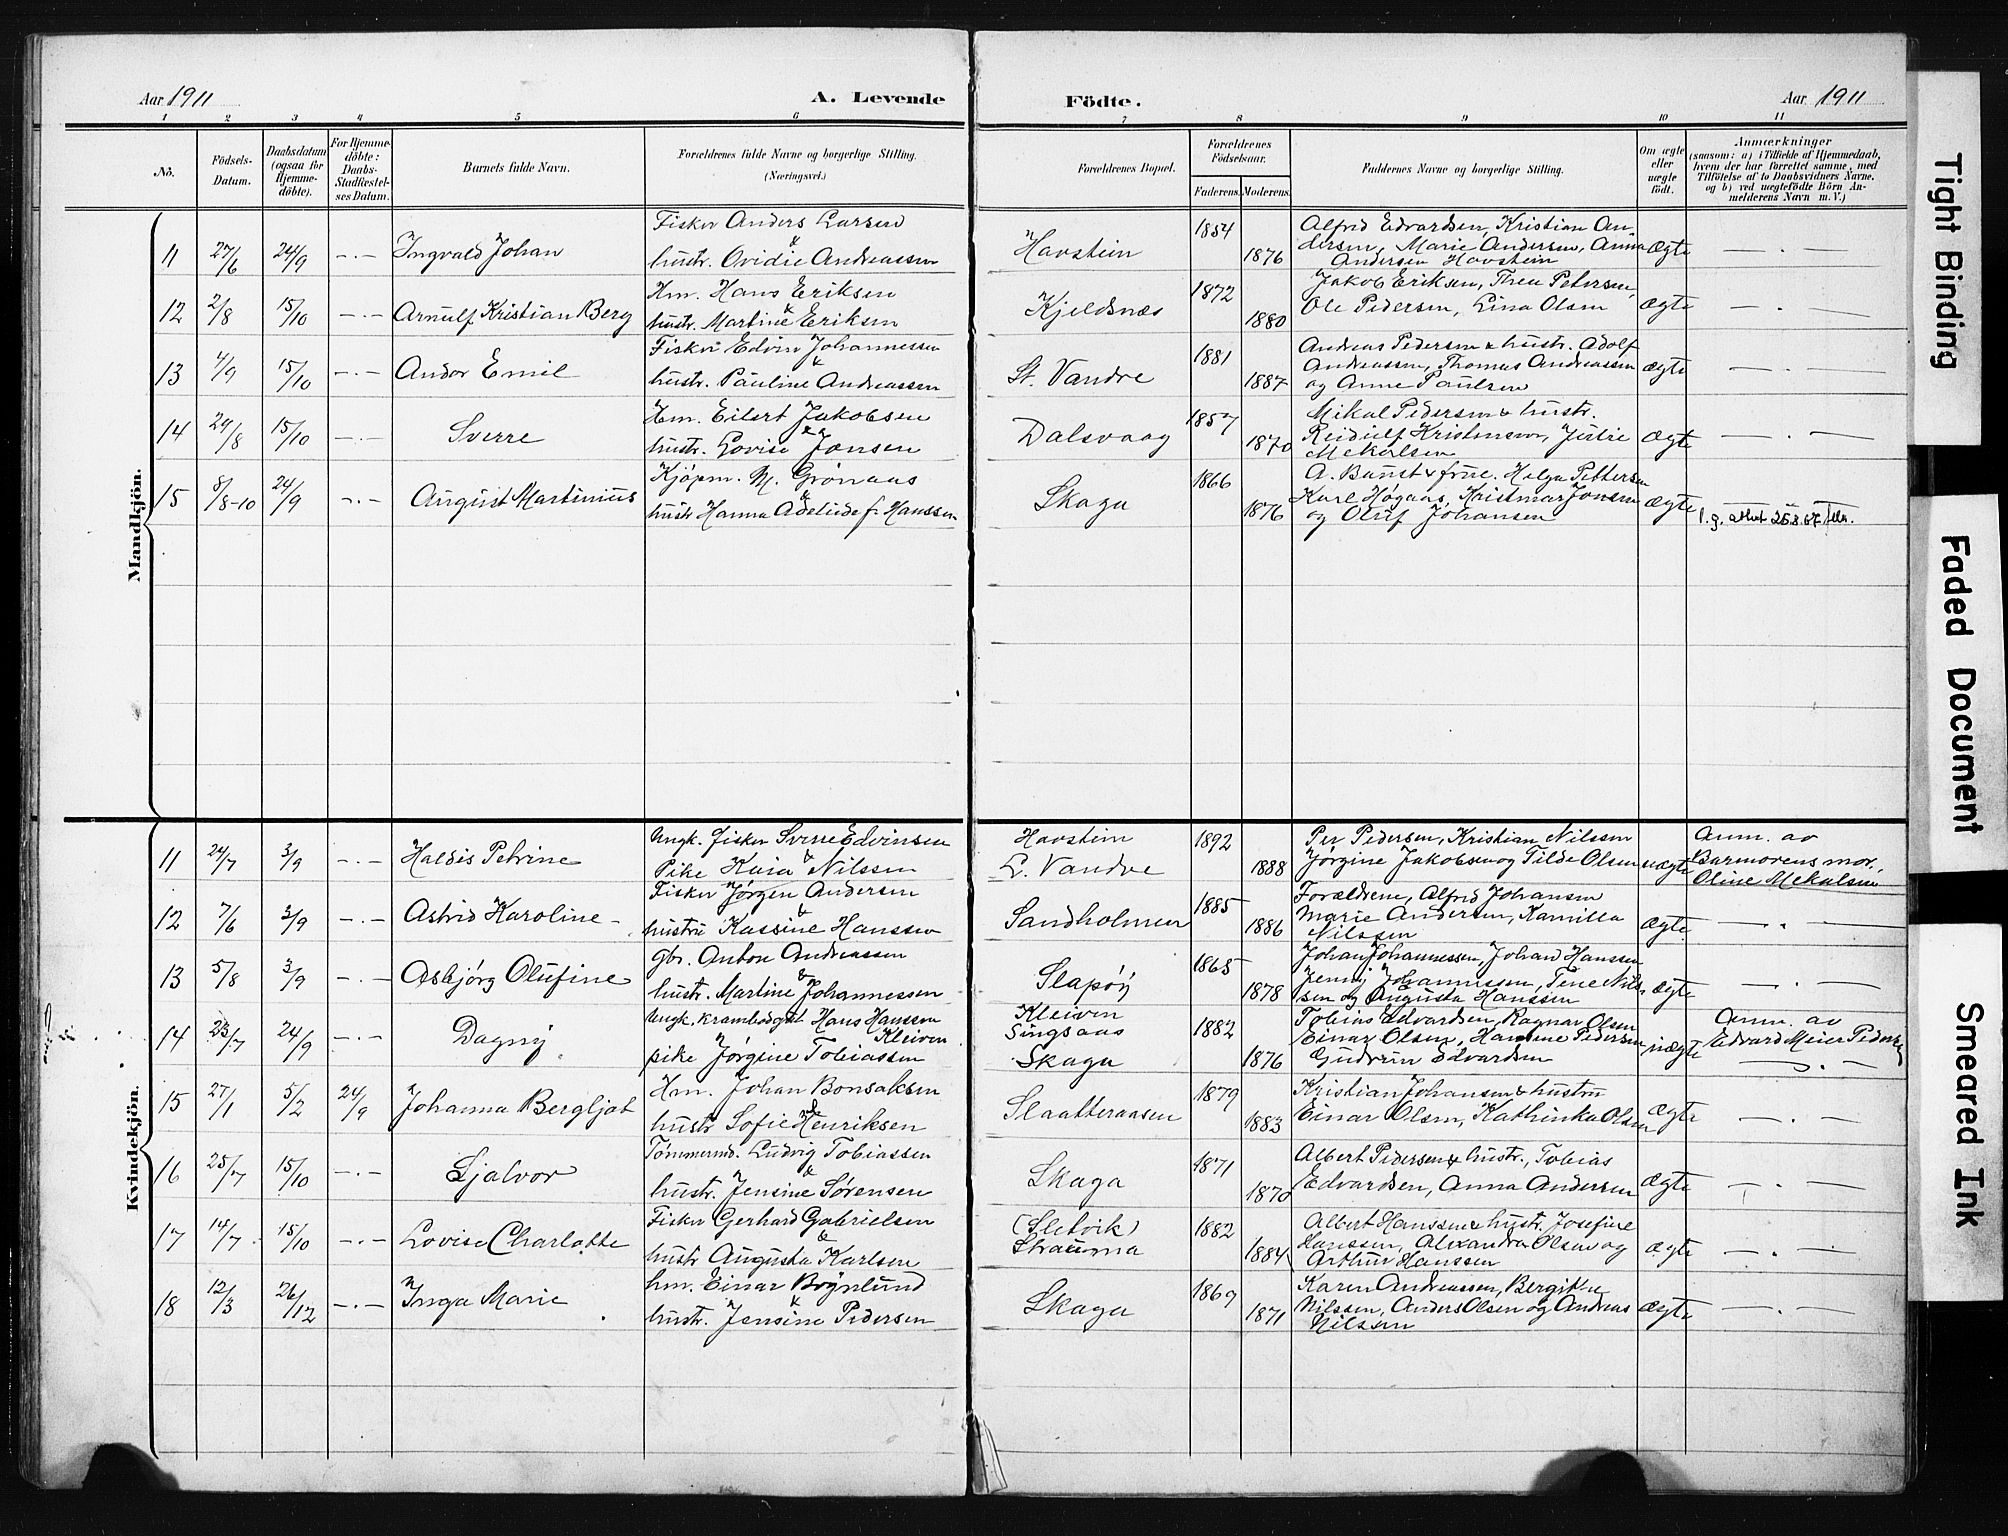 Aar 1911
A. Levende
Födte.
Aar 1911
1 2 3 4 5 6 7 8 9 10 11
No. Födsels-Datum. Daabsdatum (ogsaa for Hjemme-döbte). For Hjemme-döbte: Daabs-Stadfæstel-ses Datum. Barnets fulde Navn. Forældrenes fulde Navne og borgerlige Stilling. (Næringsvei.) Forældrenes Bopæl. Forældrenes Födselsaar. Faderens. Moderens. Faddernes Navne og borgerlige Stilling. Om ægte eller uægte födt. Anmærkninger (saasom: a) i Tilfælde af Hjemmedaab, hvem der har forrettet samme, med Tilföielse af to Daabsvidners Navne. og b) ved uægtefödte Börn An-melderens Navn m. V.)
Mandkjön.
11 27/6 24/9 -.- Ingvald Johan
Fisker Anders Larsen
& hustr. Ovidie Andreassen
Havstein 1854 1876
Alfred Edvardsen, Kristian An-
dersen, Marie Andersen, Anna
Andersen Havstein
Ægte — . —
12 2/8 15/10 -.- Arnulf Kristian Berg
Hm. Hans Eriksen
& hustr. Martine Eriksen
Kjeldsnæs 1872 1880
Jakob Eriksen, Thea Petersen,
Ole Pedersen, Lina Olsen
Ægte — . —
13 4/9 15/10 -.- Andor Emil
Fisker Edvin Johannessen
& hustr. Pauline Andreassen
St. Vandve 1881 1887
Andreas Pedersen & hustr. Adolf
Andreassen, Thomas Andreassen
og Anne Paulsen
Ægte — . —
14 29/8 15/10 -.- Sverre
Hm. Eilert Jakobsen
& hustr. Lovise Jonsen
Dalsvaag 1857 1870
Mikal Pedersen & hustr.
Reidulf Kristensen,
Mekalsen
Ægte — . —
15 8/8-10 24/9 -.- August Martinius
Kjöpm. M. Grönaas
& hustr Hanna Adeliede f. Hanssen
Skaga 1866 1876
A. Baust & frue. Helga Pettersen
Karl Høgaas, Kristmar Jonsen
og Oluf Johansen
Ægte
Kvindekjön.
11 24/7 3/9 -.- Haldis Petrine
Ungk. fisker Sverre Edvinsen
& Pike Kaia Nilssen
Havstein
L. Vandve 1892 1888
Per Pedersen, Kristian Nilssen
Jørgine Jakobsen og Tilde Olsen
uægte
Anm. av
Barmorens mor,
Oline Mekalsen
12 7/6 3/9 -.- Astrid Karoline
Fisker Jørgen Andersen
& hustru Kassine Hanssen
Sandholmen 1885 1886
Forældrene, Alfred Johansen
Marie Andersen, Kamilla
Nilssen
ægte — . —
13 5/8 3/9 -.- Asbjørg Olufine
gbr. Anton Andreassen
& hustr. Martine Johannessen
Slapöÿ 1865 1878
Johan Johannessen, Johan Hanssen
Jenny Johannessen, Tene Nils-
sen og Augusta Hanssen
ægte — . —
14 23/7 24/9 -.- Dagny
Ungk. krambodgut Hans Hanssen
Kleiven
pike Jørgine Tobiassen
Kleiven
Singsaas
Skaga 1882 1876
Tobias Edvardsen, Ragnar Olsen
Einar Olsen, Hansine Pedersen
Gudrun Edvardsen
uægte
Anm. av
Edvard Meier Pedersen
15 27/1 5/2 24/9 Johanna Bergljot
Hm. Johan Bonsaksen
& hustr Sofie Henriksen
Slaatteraasen 1879 1883
Kristian Johansen & hustru
Einar Olsen, Kathinka Olsen
Ægte — . —
16 25/7 15/10 -.- Sjalvor
Tømmermd. Ludvig Tobiassen
& hustr. Jensine Sørensen
Skaga 1871 1870
Albert Pedersen & hustr., Tobias
Edvardsen, Anna Andersen
Ægte — . —
17 14/7 15/10 -.- Lovise Charlotte
Fisker Gerhard Gabrielsen
& hustr Augusta Karlsen
(Sletvik)
Strauma 1882 1884
Albert Hanssen & hustr. Josefine
Hanssen, Alexandra Olsen og
Arthur Hanssen
Ægte — . —
18 12/3 26/12 -.- Inga Marie
hm. Einar Brynlund
& hustr. Jensine Pedersen
Skaga 1869 1871
Karen Andreassen, Bergitte
Nilssen, Anders Olsen og Andreas
Nilssen
Ægte — . —
Tight Binding
Faded Document
Smeared Ink